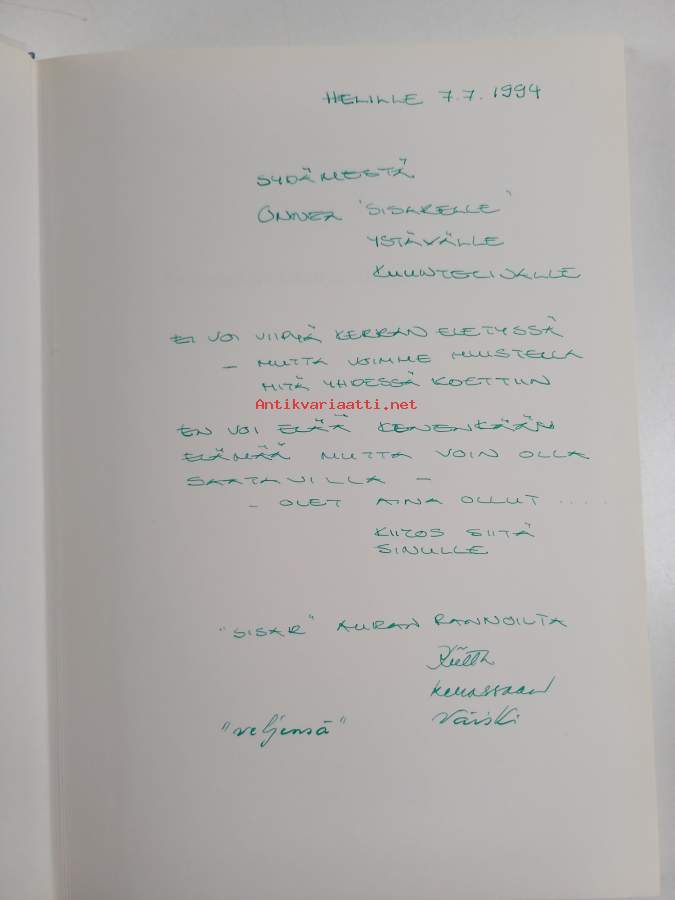 HELILLE 7.7.1994
SYDÄMESTÄ
ONNEA "SISARELLE"
YSTÄVÄLLE
KUUNTELIJALLE
EI VOI VIIPYÄ KERRAN ELETYSSÄ
- MUTTA VOIMME MUISTELLA
MITÄ YHDESSÄ KOETTIIN
Antikvariaatti.net
EN VOI ELÄÄ KENENKÄÄN
ELÄMÄÄ MUTTA VOIN OLLA
SAATAVILLA -
- OLET AINA OLLUT ....
KIITOS SIITÄ
SINULLE
"SISAR" AURAN RANNOILTA
Väiski
"veljensä"